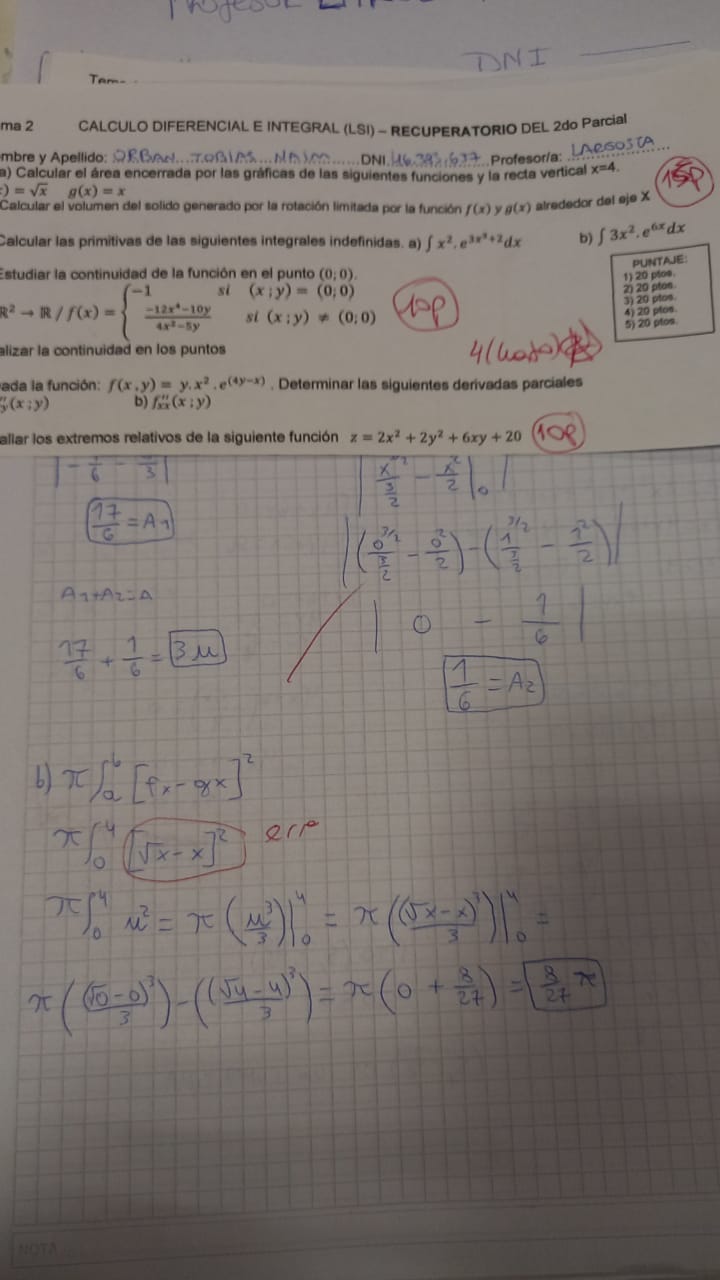 DNI
ma 2 CALCULO DIFERENCIAL E INTEGRAL (LSI) – RECUPERATORIO DEL 2do Parcial
mbre y Apellido: ORBAN TOBIAS NAIM DNI. Profesor/a:
a) Calcular el área encerrada por las gráficas de las siguientes funciones y la recta vertical x=4.
) = √x g(x) = x
15p
Calcular el volumen del solido generado por la rotación limitada por la función f(x) y g(x) alrededor del eje X
Calcular las primitivas de las siguientes integrales indefinidas. a) ∫ x². e^(3x³+2) dx b) ∫ 3x². e^(6x) dx
Estudiar la continuidad de la función en el punto (0; 0).
ℝ² → ℝ / f(x) = { −1 si (x ; y) = (0; 0)
(−12x⁴−10y)/(4x²−5y) si (x ; y) ≠ (0; 0)
10p
PUNTAJE:
1) 20 ptos.
2) 20 ptos.
3) 20 ptos.
4) 20 ptos.
5) 20 ptos.
alizar la continuidad en los puntos
4 (cuatro)
ada la función: f(x, y) = y. x² . e^(4y−x) . Determinar las siguientes derivadas parciales
y(x ; y) b) f''xx(x ; y)
allar los extremos relativos de la siguiente función z = 2x² + 2y² + 6xy + 20
10p
17/6 = A₁
A₁+A₂=A
17/6 + 1/6 = 3u
|(0^(3/2)/(3/2) − 0²/2) − (1^(3/2)/(3/2) − 1²/2)|
| 0 − 1/6 |
1/6 = A₂
b) π ∫ₐᵇ [fx − gx]²
π ∫₀⁴ [√x − x]²
π ∫₀⁴ u² = π (u³/3)|₀⁴ = π ((√x − x)³/3)|₀⁴ =
π ((√0 − 0)³/3) − ((√4 − 4)³/3) = π (0 + 8/27) = 8/27 π
NOTA